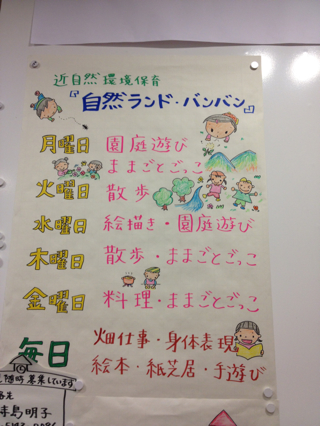 近自然環境保育
『自然ランド・バンバン』
月曜日 園庭遊び
ままごとごっこ
火曜日 散歩
水曜日 絵描き・園庭遊び
木曜日 散歩・ままごとごっこ
金曜日 料理・ままごとごっこ
毎日 畑仕事・身体表現
絵本・紙芝居・手遊び
募集しています
明子